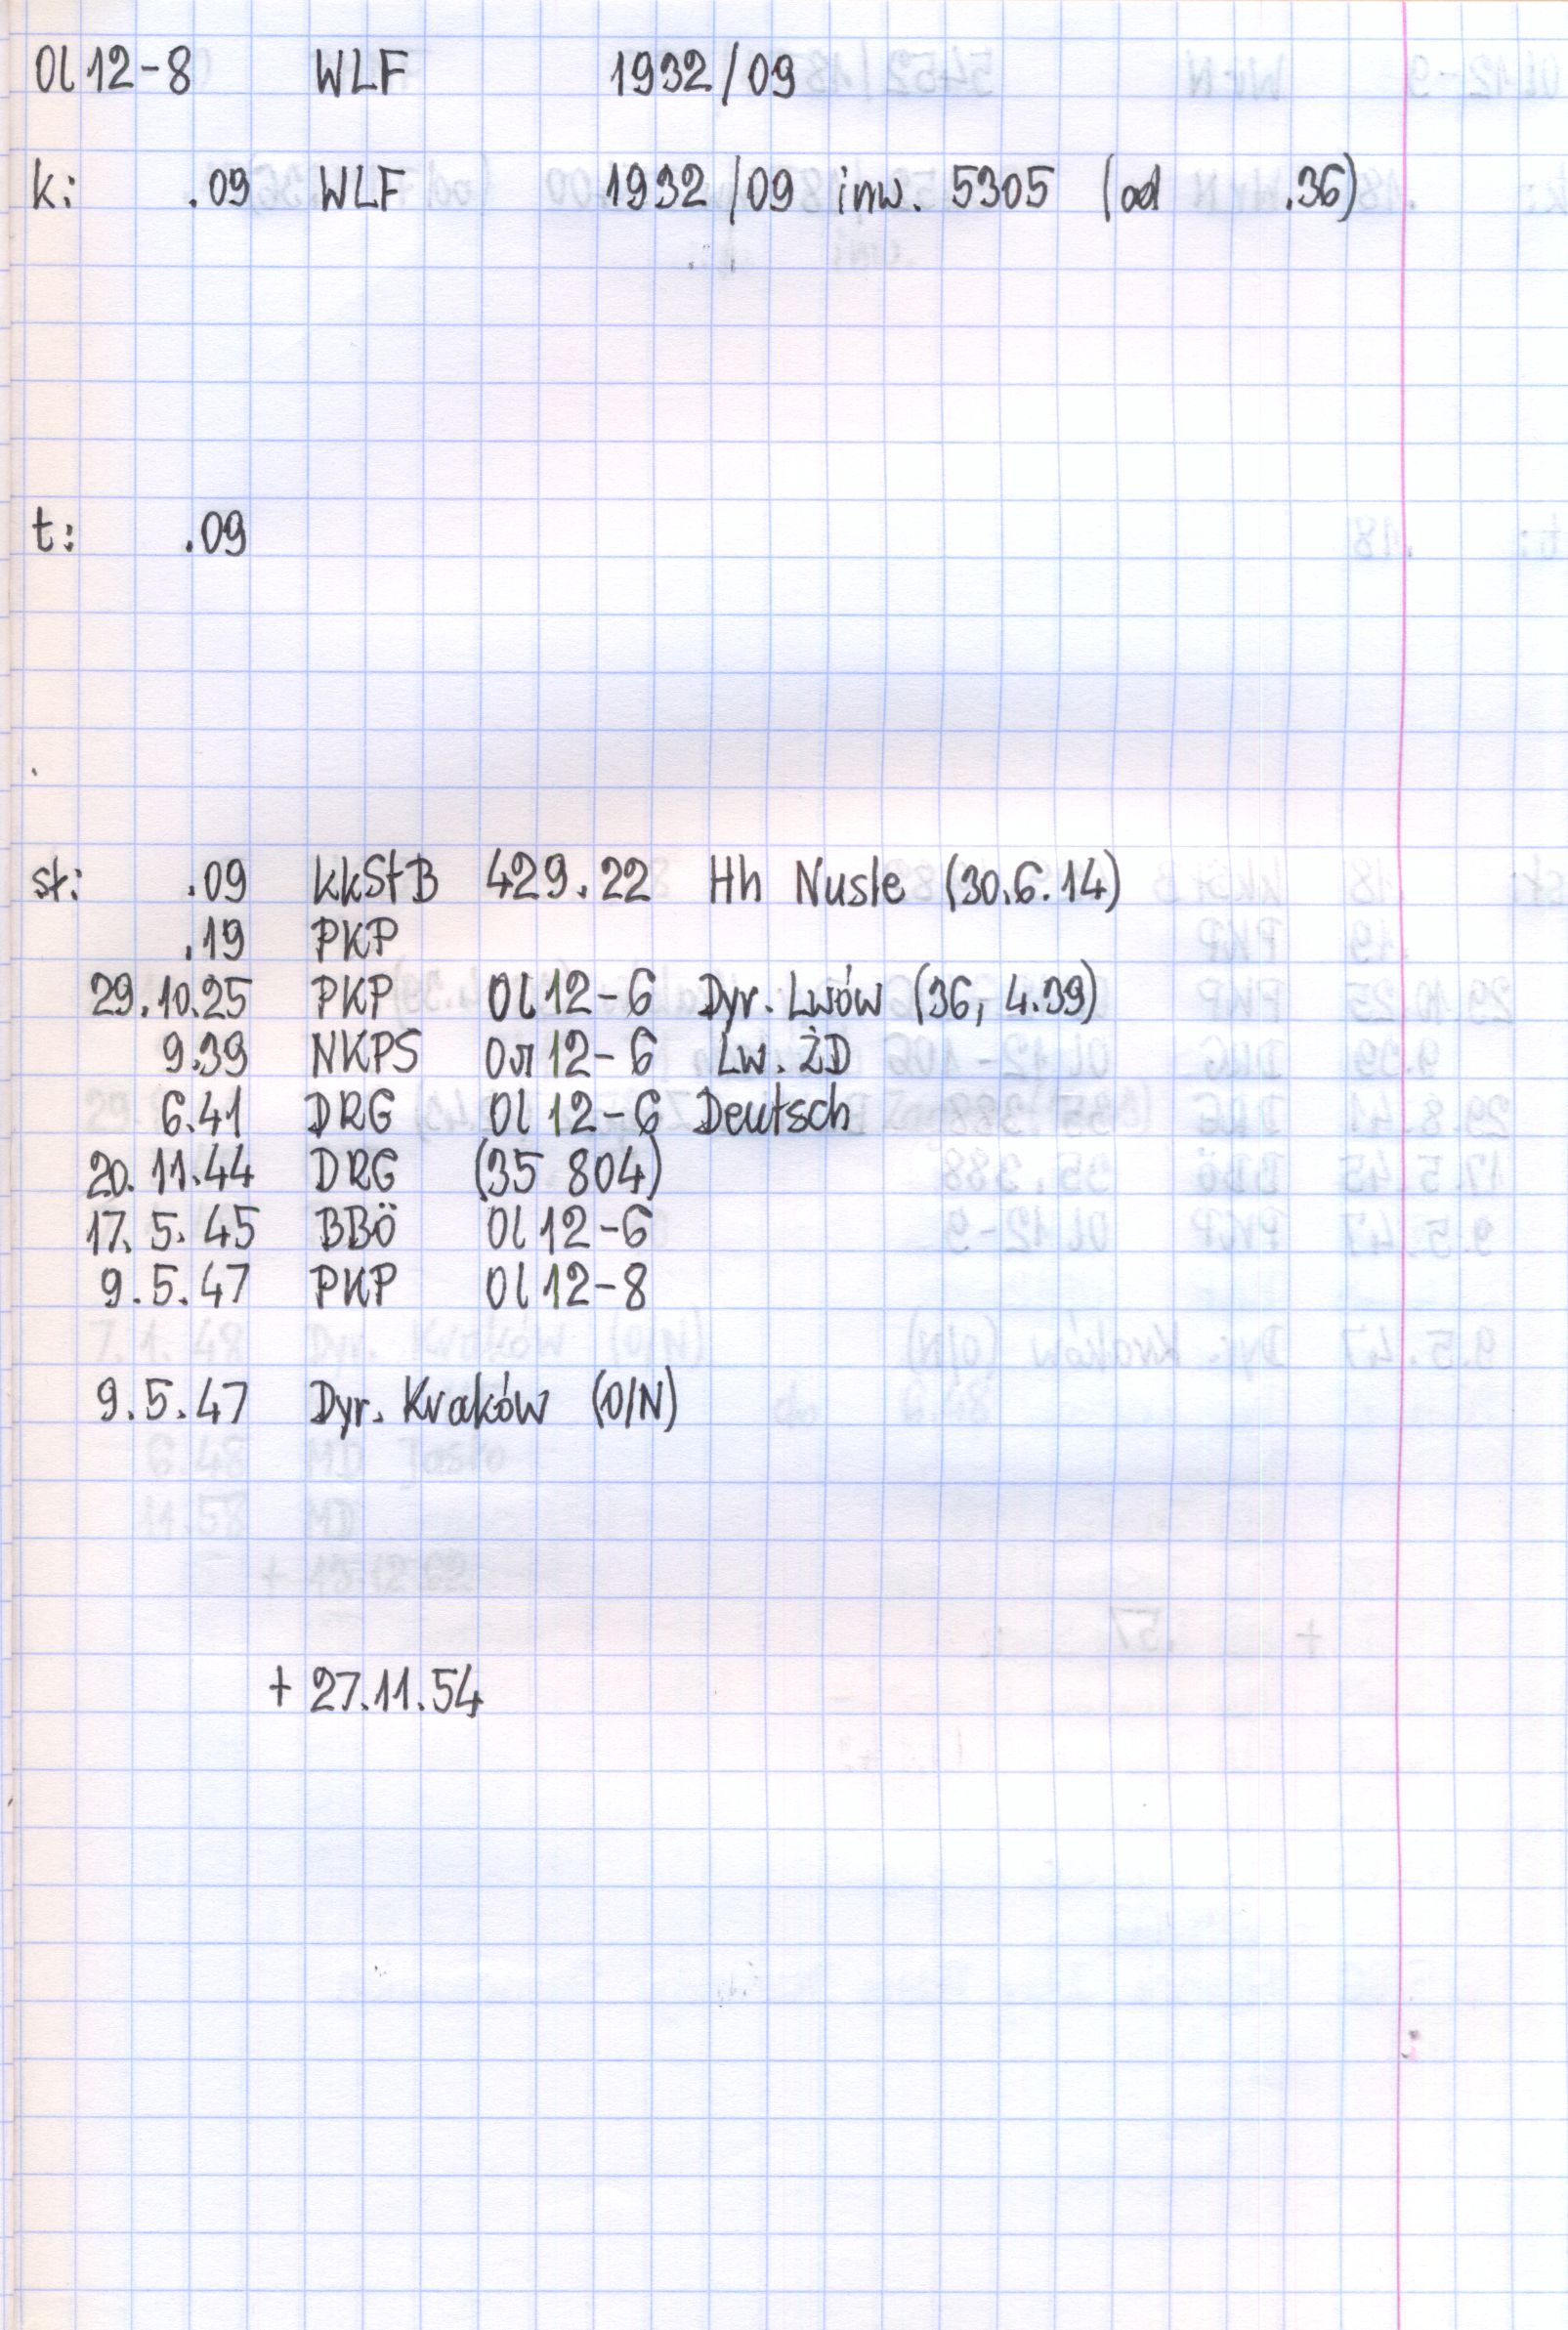 Ol 12-8 WLF 1932/09
k: .09 WLF 1932/09 inw. 5305 (od .36)
t: .09
st: .09 kkStB 429.22 Hh Nusle (30.6.14)
.19 PKP
29.10.25 PKP Ol 12-6 Dyr. Lwów (36, 4.39)
9.39 NKPS Ол 12-6 Lw. ŻD
6.41 DRG Ol 12-6 Deutsch
20.11.44 DRG (35 804)
17.5.45 BBÖ Ol 12-6
9.5.47 PKP Ol 12-8
9.5.47 Dyr. Kraków (O/N)
+ 27.11.54